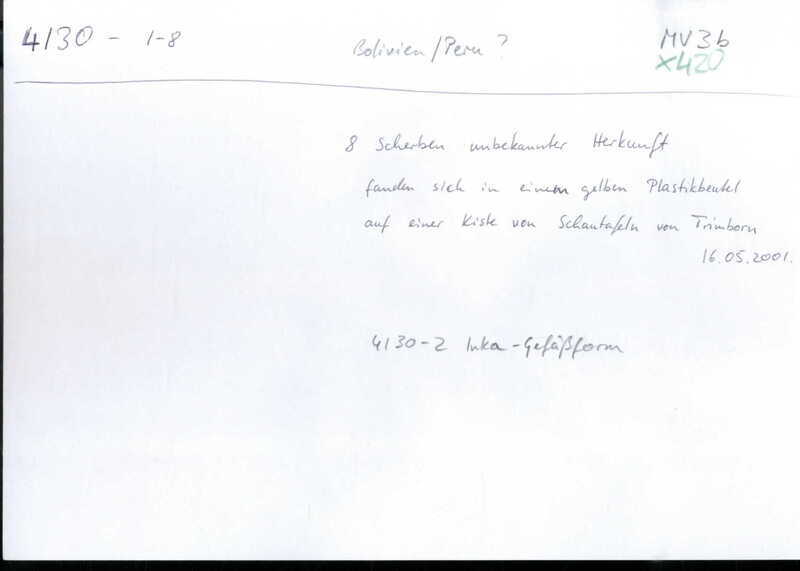 4130 - 1-8 Bolivien/Peru? MV3b
x420
8 Scherben unbekannter Herkunft
fanden sich in einem gelben Plastikbeutel
auf einer Kiste von Schautafeln von Trimborn
16.05.2001.
4130-2 Inka-Gefäßform